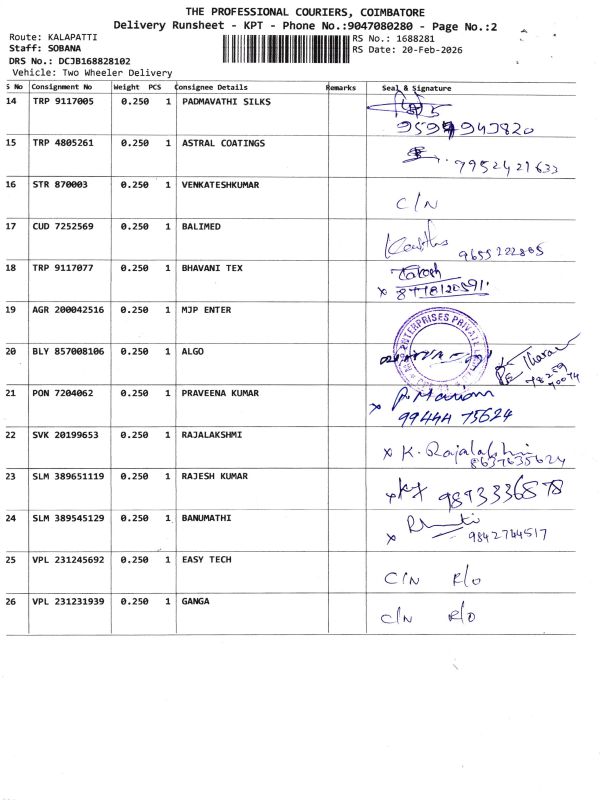 THE PROFESSIONAL COURIERS, COIMBATORE
Delivery Runsheet - KPT - Phone No.:9047080280 - Page No.:2
Route: KALAPATTI
RS No.: 1688281
Staff: SOBANA
RS Date: 20-Feb-2026
DRS No.: DCJB168828102
Vehicle: Two Wheeler Delivery
S No Consignment No Weight PCS Consignee Details Remarks Seal & Signature
14 TRP 9117005 0.250 1 PADMAVATHI SILKS
15 TRP 4805261 0.250 1 ASTRAL COATINGS 7952421633
16 STR 870003 0.250 1 VENKATESHKUMAR C/N
17 CUD 7252569 0.250 1 BALIMED 9655122805
18 TRP 9117077 0.250 1 BHAVANI TEX
19 AGR 200042516 0.250 1 MJP ENTER
ENTERPRISES PRIVATE
20 BLY 857008106 0.250 1 ALGO
78259
70074
21 PON 7204062 0.250 1 PRAVEENA KUMAR
99444 75624
22 SVK 20199653 0.250 1 RAJALAKSHMI x K. Rajalakshmi
8637635624
23 SLM 389651119 0.250 1 RAJESH KUMAR 9893336878
24 SLM 389545129 0.250 1 BANUMATHI
9842744517
25 VPL 231245692 0.250 1 EASY TECH C/N R/O
26 VPL 231231939 0.250 1 GANGA C/N R/O